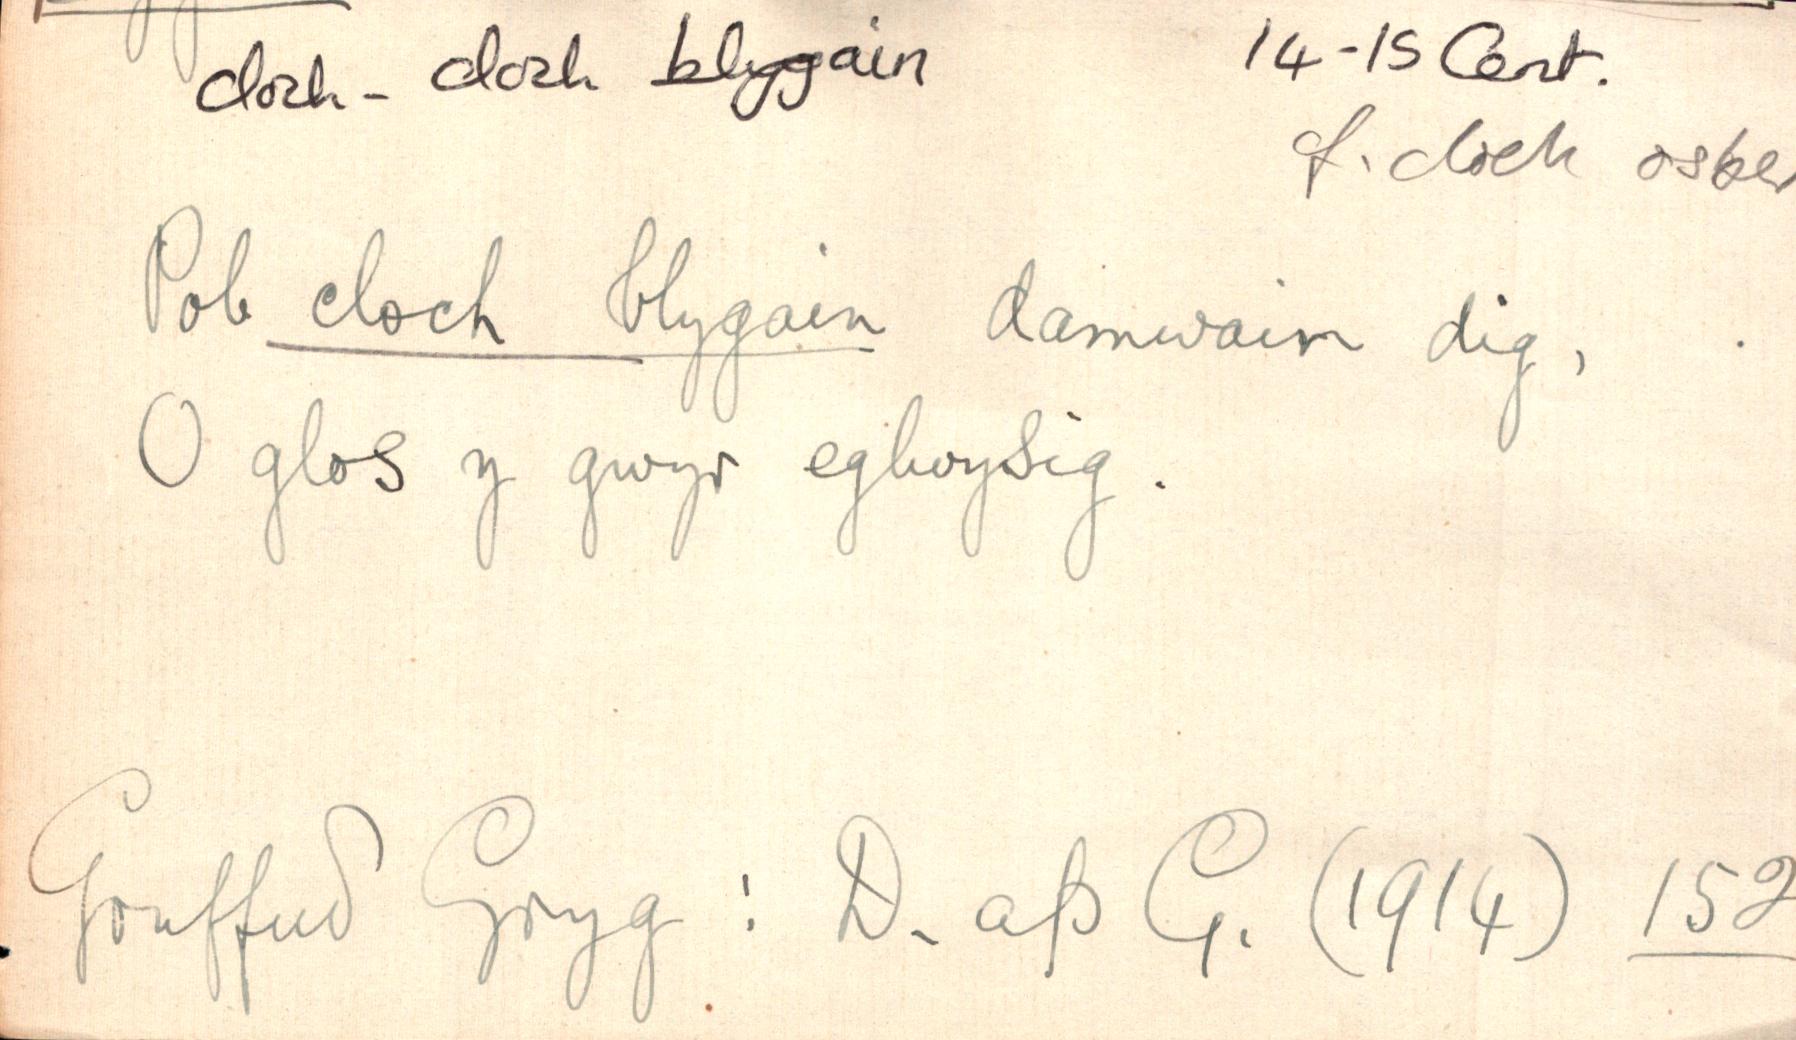 cloch - cloch blygain 14-15 Cent.
cf. cloch osber
Pob cloch blygain damwain dig,
O glos y gwyr eglwysig.
Gruffud Gryg : D. ap G. (1914) 152